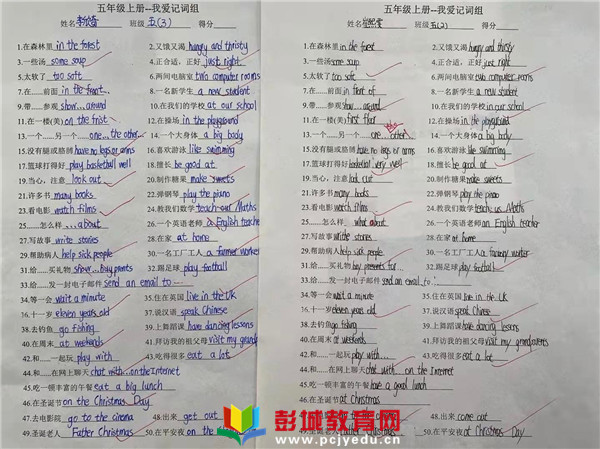 五年级上册--我爱记词组
班级 五(3) 得分
1.在森林里 in the forest 2.又饿又渴 hungry and thirsty
3.一些汤 some soup 4.正合适，正好 just right
5.太软了 too soft 6.两间电脑室 two computer rooms
7.在……前面 in the front 8.一名新学生 a new student
9.带……参观 show...around 10.在我们的学校 at our school
11.在一楼(美) on the frist 12.在操场 in the playground
13.一个……另一个 one...the other 14.一个大身体 a big body
15.没有腿或胳膊 have no legs or arms 16.喜欢游泳 like swimming
17.篮球打得好 play basketball well 18.擅长 be good at
19.当心，注意 look out 20.制作糖果 make sweets
21.许多书 many books 22.弹钢琴 play the piano
23.看电影 watch films 24.教我们数学 teach our Maths
25……怎么样 ...about 26.一个英语老师 a English teacher
27.写故事 write stories 28.在家 at home
29.帮助病人 help sick people 30.一名工厂工人 a farmer worker
31.给……买礼物 show...buy prents 32.踢足球 play football
33.给……发一封电子邮件 send an email to...
34.等一会 wait a minute 35.住在英国 live in the UK
36.十一岁 eleven years old 37.说汉语 speak Chinese
38.去钓鱼 go fishing 39.上舞蹈课 have dancing lessons
40.在周末 at weekends 41.拜访我的祖父母 visit my grand
42.和……一起玩 play with 43.吃得很多 eat a lot
44.和……在网上聊天 chat with...on the Internet
45.吃一顿丰富的午餐 eat a big lunch
46.在圣诞节 on the Christmas Day
47.去电影院 go to the cinema 48.出来 get out
49.圣诞老人 Father Christmas 50.在平安夜 on the
五年级上册--我爱记词组
姓名 班级 五(2) 得分
1.在森林里 in the forest 2.又饿又渴 hungry and thirsty
3.一些汤 some soup 4.正合适，正好 just right
5.太软了 too soft 6.两间电脑室 two computer rooms
7.在……前面 in front of 8.一名新学生 a new student
9.带……参观 show...around 10.在我们的学校 in our school
11.在一楼(美) first floor 12.在操场 in the playground
13.一个……另一个 one...other 14.一个大身体 a big body
15.没有腿或胳膊 have no legs or arms 16.喜欢游泳 like swimming
17.篮球打得好 very well 18.擅长 be good at
19.当心，注意 look out 20.制作糖果 make sweets
21.许多书 many books 22.弹钢琴 play the piano
23.看电影 watch films 24.教我们数学 teach us Maths
25……怎么样 what about 26.一个英语老师 an English teacher
27.写故事 write stories 28.在家 at home
29.帮助病人 help sick people 30.一名工厂工人 a factory worker
31.给……买礼物 buy presents for 32.踢足球 play football
33.给……发一封电子邮件 send an email to...
34.等一会 wait a minute 35.住在英国 live in the UK
36.十一岁 eleven years old 37.说汉语 speak Chinese
38.去钓鱼 go fishing 39.上舞蹈课 have dancing lessons
40.在周末 at weekends 41.拜访我的祖父母 visit my grandparents
42.和……一起玩 play with... 43.吃得很多 eat a lot
44.和……在网上聊天 chat with... on the Internet
45.吃一顿丰富的午餐 have a good lunch
46.在圣诞节 at Christmas
47.去电影院 48.出来 come out
49.圣诞老人 Father Christmas 50.在平安夜 at Christmas Day
彭城教育网
www.pcjyedu.cn